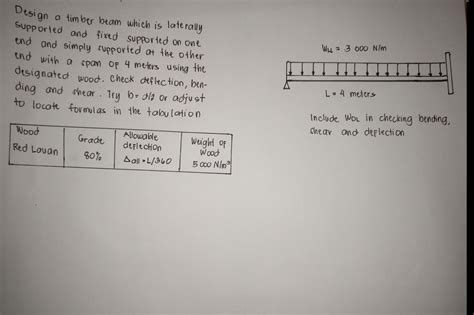 Design a timber beam which is laterally
supported and fixed supported on one
end and simply supported at the other
end with a span of 4 meters using the
designated wood. Check deflection, ben-
ding and shear. Try b = d/2 or adjust
to locate formulas in the tabulation
WLL = 3 000 N/m
L = 4 meters
Include WDL in checking bending,
shear and deflection
Wood Grade Allowable deflection Weight of Wood
Red Lauan 80% Δall = L/360 5 000 N/m³